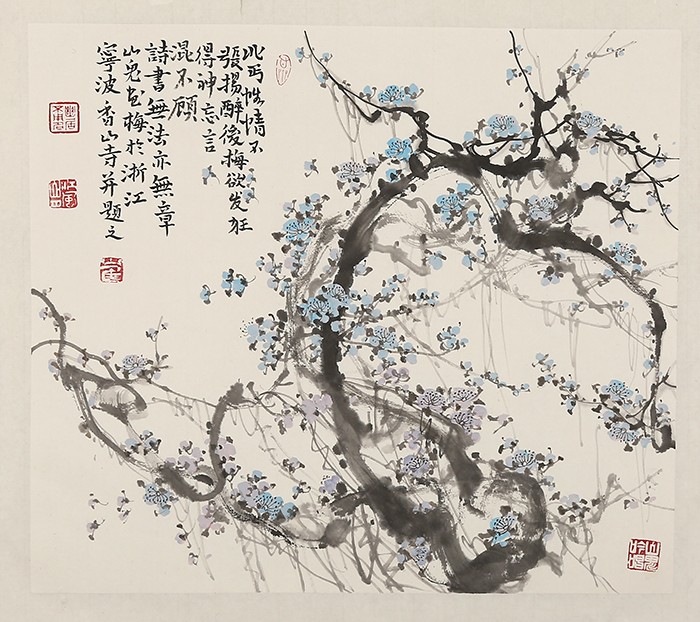 此丐性情不
張揚醉後梅欲发狂
得神忘言
混不顧
詩書無法亦無章
山鬼画梅於浙江
寧波香山寺并題之